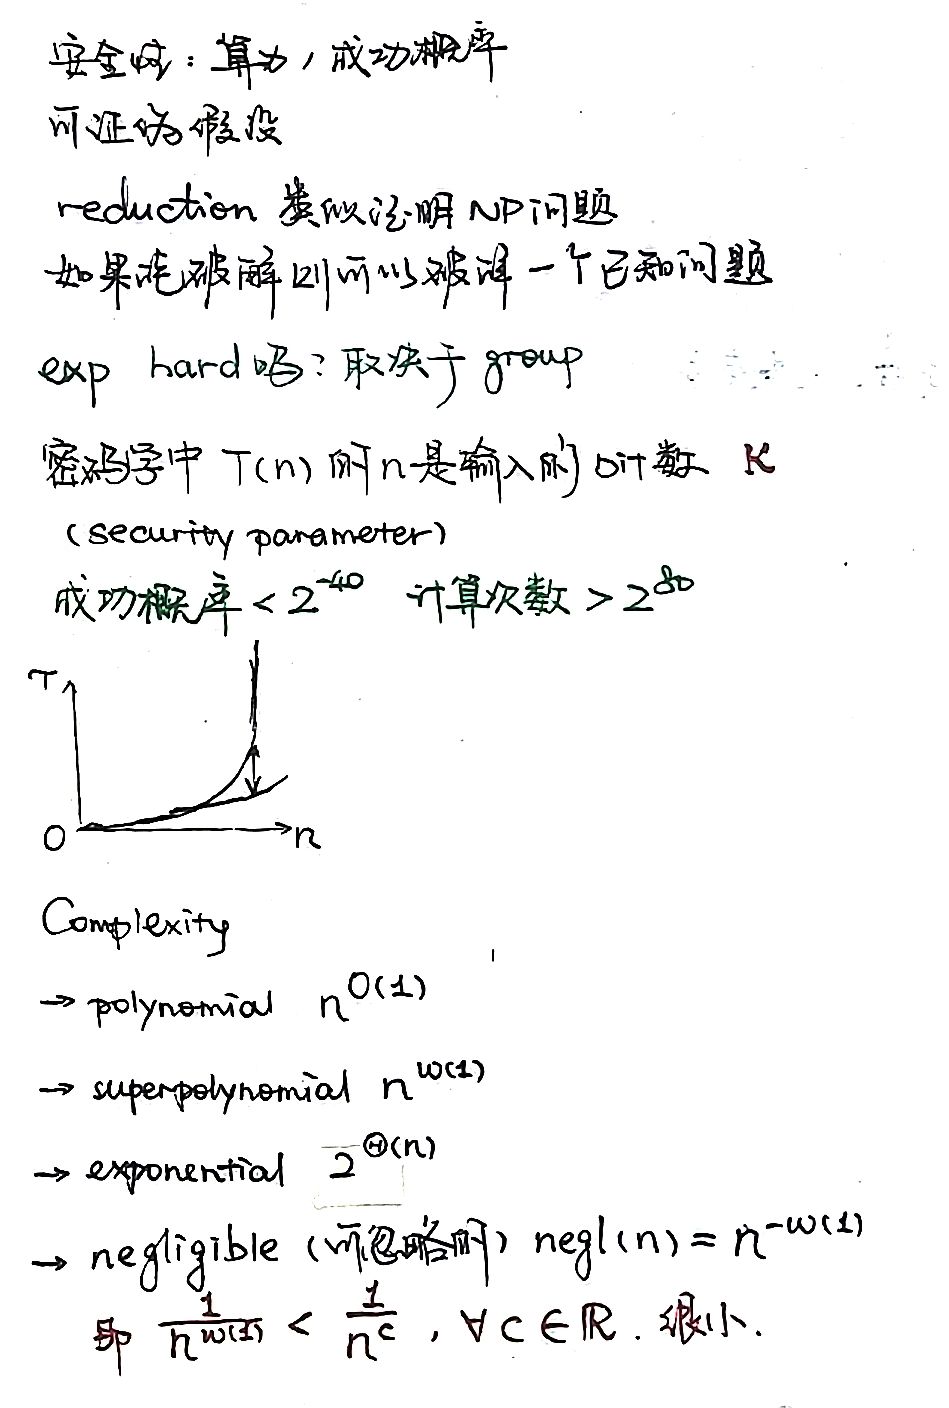 安全性：算力，成功概率
可证伪假设
reduction 类似证明NP问题
如果能破解则可以破译一个已知问题
exp hard吗？取决于group
密码学中 T(n) 的n是输入的bit数 K
(security parameter)
成功概率 < 2^-40 计算次数 > 2^80
T
O n
Complexity
→ polynomial n^O(1)
→ superpolynomial n^ω(1)
→ exponential 2^Θ(n)
→ negligible (可忽略的) negl(n) = n^-ω(1)
即 1/n^ω(1) < 1/n^c , ∀c∈ℝ. 很小.